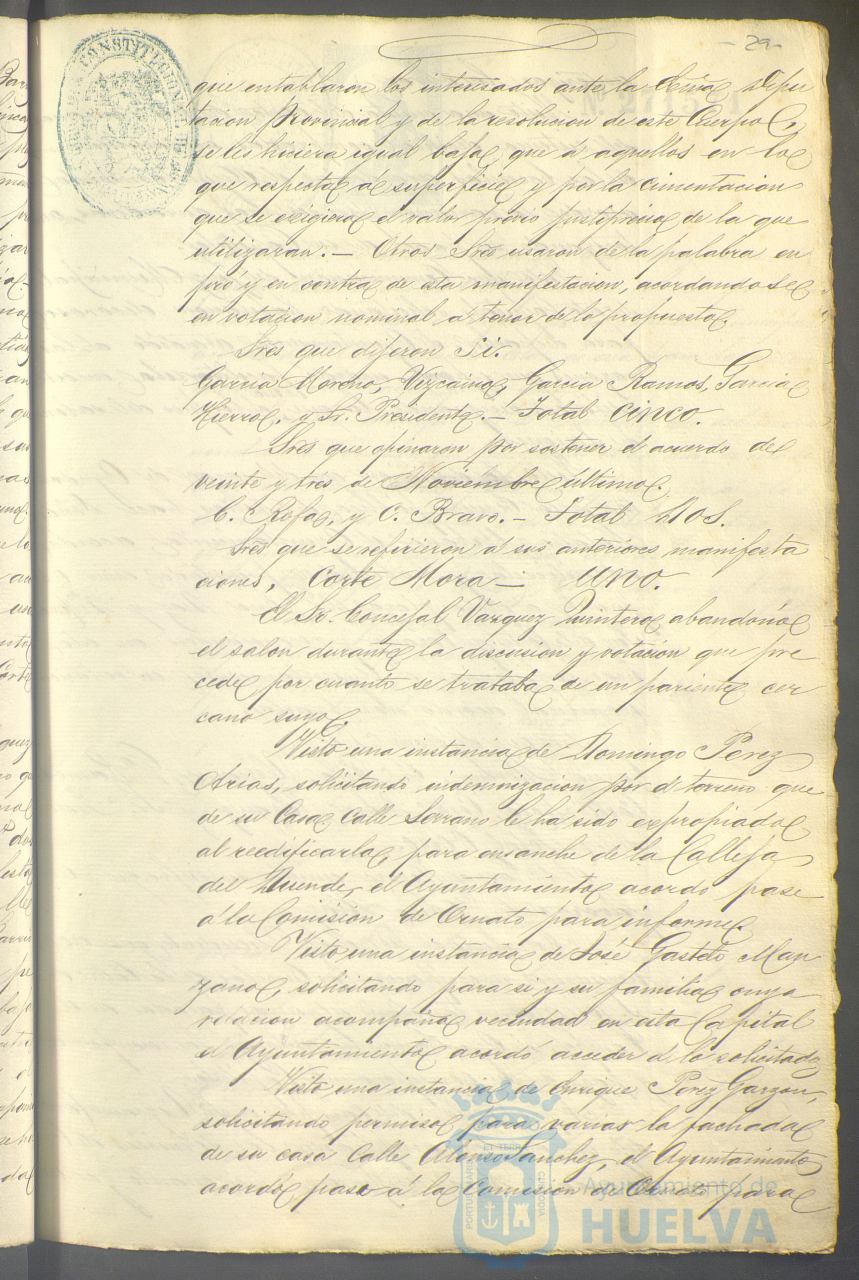 29
que entablaron los interesados ante la Excma Dipu
tacion Provincial y de la resolucion de este Cuerpo
se les hiciera igual baja que á aquellos en lo
que respecta á superficie y por la cimentacion
que se exigiera el valor prévio justiprecio de la que
utilizaran.— Otros Sres usaron de la palabra en
pró y en contra de esta manifestacion, acordandose
en votacion nominal á tenor de lo propuesto.
Sres que dijeron Si.
Garcia Moreno, Vizcaino, Garcia Ramos, Garcia
Hierro, y Sr. Presidente.— Total cinco.
Sres que opinaron por sostener el acuerdo de
veinte y tres de Noviembre último.
C. Rofa, y O. Bravo.— Total dos.
Sres que se refirieron á sus anteriores manifesta
ciones, Corte Mora — uno.
El Sr. Concejal Vazquez Quintero abandonó
el salon durante la discusion y votacion que pre
cede por cuanto se trataba de un pariente cer
cano suyo.
Visto una instancia de Domingo Perez
Arias, solicitando indemnizacion por el terreno que
de su Casa calle Serrano le ha sido expropiado
al reedificarla, para ensanche de la Calleja
del Duende, el Ayuntamiento acordo pase
á la Comision de Ornato para informe.
Visto una instancia de José Gasteto Man
zano, solicitando para si y su familia cuya
relacion acompaña vecindad en esta Capital
el Ayuntamiento acordó acceder á lo solicitado
Visto una instancia de Enrique Perez Garzon,
solicitando permiso para variar la fachada
de su casa calle Alonso Sanchez, el Ayuntamiento
acordó pase á la Comision de Ornato para
Ayuntamiento de
HUELVA